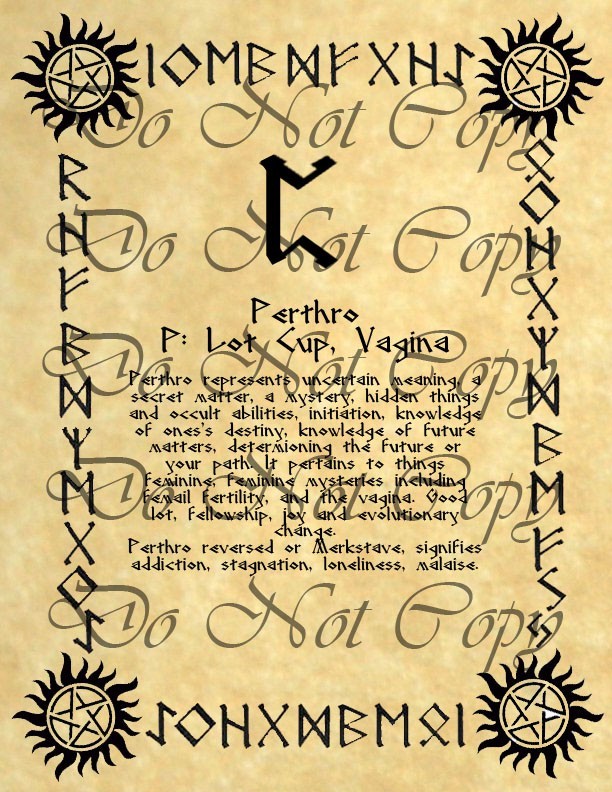 Do Not Copy
ᛈ
Do Not Copy
Perthro
P: Lot Cup, Vagina
Do Not Copy
Perthro represents uncertain meaning, a
secret matter, a mystery, hidden things
and occult abilities, initiation, knowledge
of ones's destiny, knowledge of future
matters, determioning the future or
your path. It pertains to things
feminine, feminine mysteries including
femail fertility, and the vagina. Good
Do Not Copy
lot, fellowship, joy and evolutionary
change.
Perthro reversed or Merkstave, signifies
addiction, stagnation, loneliness, malaise.
Do Not Copy